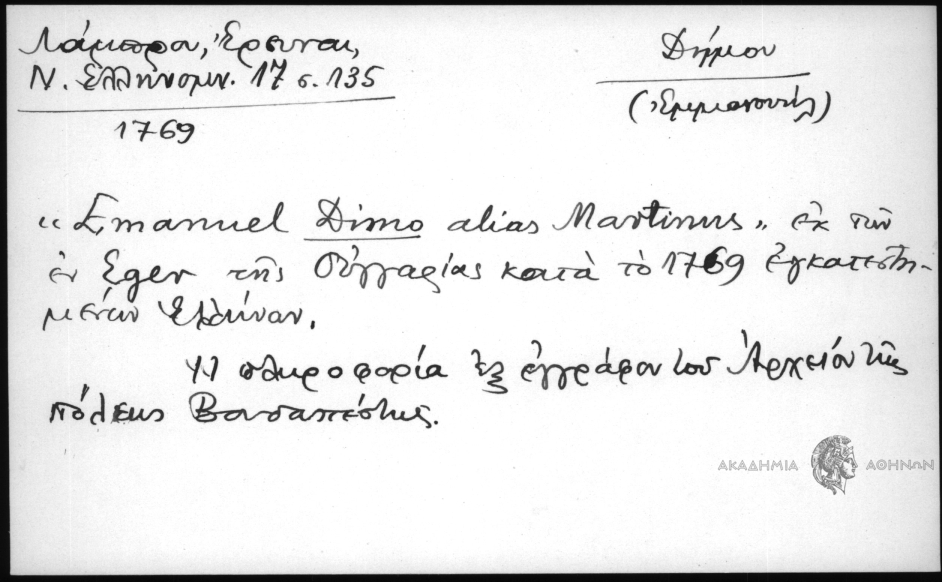 Λάμπρου, Ἔρευναι,
Ν. Ἑλληνομν. 17 σ. 135
1769
Δήμου
(Ἐμμανουήλ)
"Emanuel Dimo alias Martinus" ἐκ τῶν
ἐν Eger τῆς Οὐγγαρίας κατὰ τὸ 1769 ἐγκατεστη-
μένων Ἑλλήνων.
Ἡ πληροφορία ἐξ ἐγγράφου τοῦ Ἀρχείου τῆς
πόλεως Βουδαπέστης.
ΑΚΑΔΗΜΙΑ ΑΘΗΝΩΝ